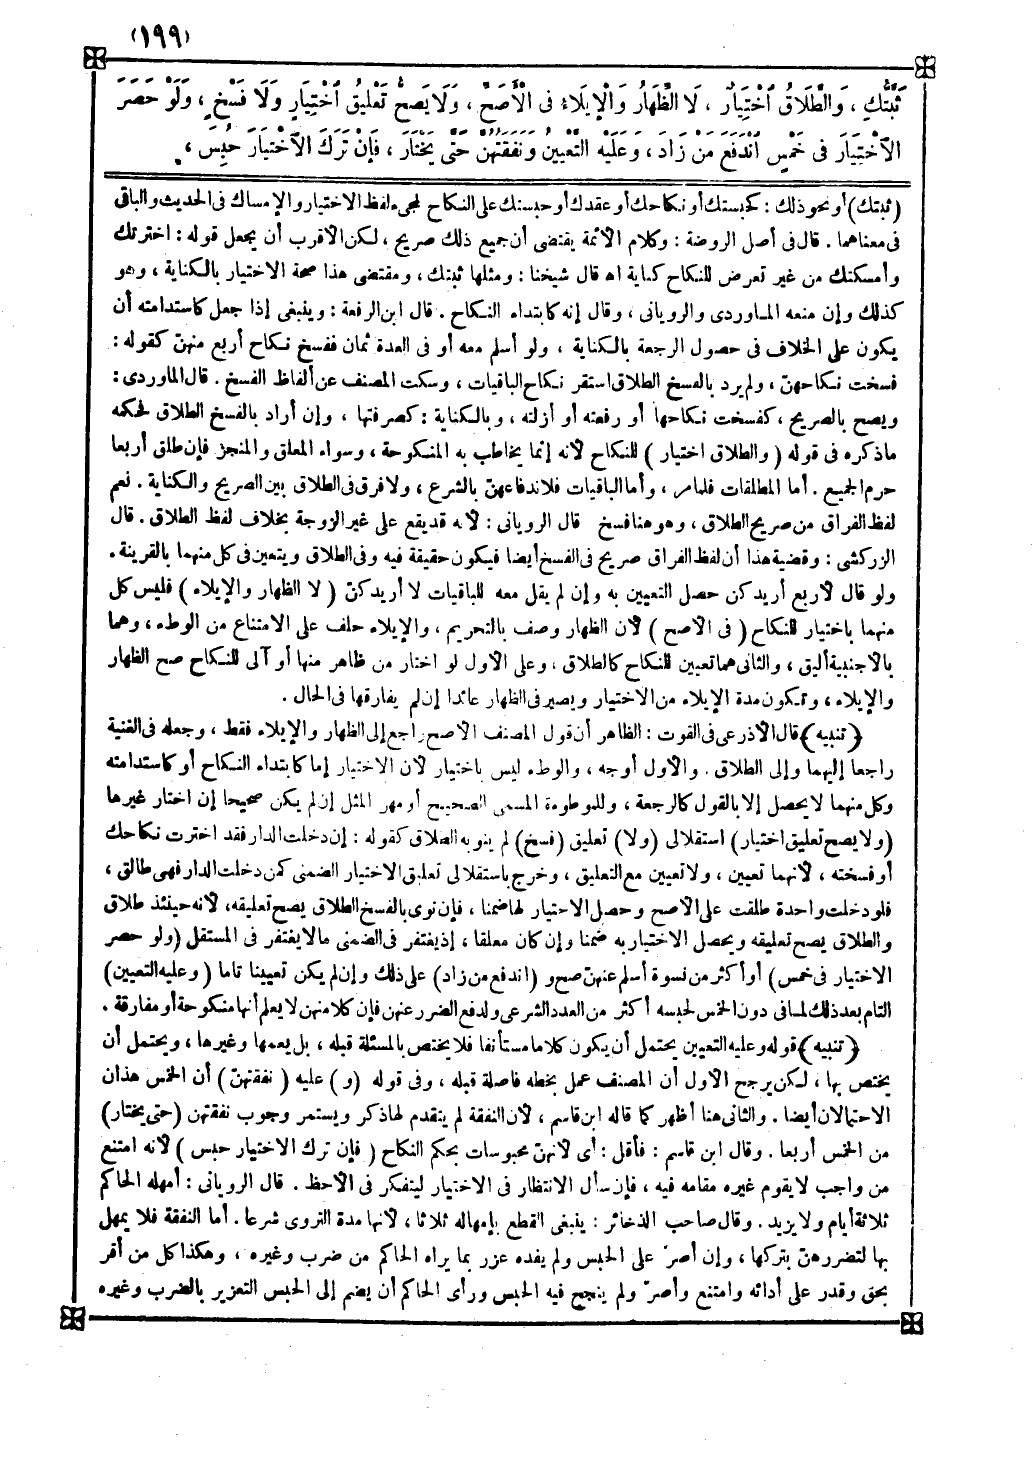 (١٩٩)
ثَبَّتُّكِ ، وَالطَّلَاقُ اخْتِيَارٌ ، لَا الظِّهَارُ وَالْإِيلَاءُ فِى الْأَصَحِّ ، وَلَا يَصِحُّ تَعْلِيقُ اخْتِيَارٍ وَلَا فَسْخٍ ، وَلَوْ حَصَرَ
الِاخْتِيَارَ فِى خَمْسٍ انْدَفَعَ مَنْ زَادَ ، وَعَلَيْهِ التَّعْيِينُ وَنَفَقَتُهُنَّ حَتَّى يَخْتَارَ ، فَإِنْ تَرَكَ الِاخْتِيَارَ حُبِسَ ،
(ثبتك) أو نحو ذلك : كحبستك أو نكاحك أو عقدك أو حبستك على النكاح لمجىء لفظ الاختيار والإمساك فى الحديث والباقى
فى معناهما . قال فى أصل الروضة : وكلام الأئمة يقتضى أن جميع ذلك صريح ، لكن الأقرب أن يجعل قوله : اخترتك
وأمسكتك من غير تعرض للنكاح كناية اه قال شيخنا : ومثلها ثبتك ، ومقتضى هذا صحة الاختيار بالكناية ، وهو
كذلك وإن منعه الماوردى والرويانى ، وقال إنه كابتداء النكاح . قال ابن الرفعة : وينبغى إذا جعل كاستدامته أن
يكون على الخلاف فى حصول الرجعة بالكناية ، ولو أسلم معه أو فى العدة ثمان ففسخ نكاح أربع منهن كقوله :
فسخت نكاحهن ، ولم يرد بالفسخ الطلاق استقر نكاح الباقيات ، وسكت المصنف عن ألفاظ الفسخ . قال الماوردى :
ويصح بالصريح ، كفسخت نكاحها أو رفعته أو أزلته ، وبالكناية : كصرفتها ، وإن أراد بالفسخ الطلاق فحكمه
ماذكره فى قوله (والطلاق اختيار) للنكاح لأنه إنما يخاطب به المنكوحة ، وسواء المعلق والمنجز فإن طلق أربعا
حرم الجميع . أما المطلقات فلما مر ، وأما الباقيات فلاندفاعهن بالشرع ، ولا فرق فى الطلاق بين الصريح والكناية . نعم
لفظ الفراق من صريح الطلاق ، وهو هنا فسخ قال الرويانى : لأنه قد يقع على غير الزوجة بخلاف لفظ الطلاق . قال
الزركشى : وقضية هذا أن لفظ الفراق صريح فى الفسخ أيضا فيكون حقيقة فيه وفى الطلاق ويتعين فى كل منهما بالقرينة .
ولو قال لأربع أريدكن حصل التعيين به وإن لم يقل معه للباقيات لا أريدكن (لا الظهار والإيلاء) فليس كل
منهما باختيار للنكاح (فى الأصح) لأن الظهار وصف بالتحريم ، والإيلاء حلف على الامتناع من الوطء ، وهما
بالأجنبية أليق ، والثانى هما تعيين للنكاح كالطلاق ، وعلى الأول لو اختار من ظاهر منها أو آلى للنكاح صح الظهار
والإيلاء ، وتكون مدة الإيلاء من الاختيار ويصير فى الظهار عائدا إن لم يفارقها فى الحال .
(تنبيه) قال الأذرعى فى القوت : الظاهر أن قول المصنف الأصح راجع إلى الظهار والإيلاء فقط ، وجعله فى الغنية
راجعا إليهما وإلى الطلاق . والأول أوجه ، والوطء ليس باختيار لأن الاختيار إما كابتداء النكاح أو كاستدامته
وكل منهما لا يحصل إلا بالقول كالرجعة ، وللموطوءة المسمى الصحيح أو مهر المثل إن لم يكن صحيحا إن اختار غيرها
(ولا يصح تعليق اختيار) استقلالى (ولا) تعليق (فسخ) لم ينو به الطلاق كقوله : إن دخلت الدار فقد اخترت نكاحك
أو فسخته ، لأنهما تعيين ، ولا تعيين مع التعليق ، وخرج باستقلالى تعليق الاختيار الضمنى كمن دخلت الدار فهى طالق ،
فلو دخلت واحدة طلقت على الأصح وحصل الاختيار لها ضمنا ، فإن نوى بالفسخ الطلاق يصح تعليقه، لأنه حينئذ طلاق
والطلاق يصح تعليقه ويحصل الاختيار به ضمنا وإن كان معلقا ، إذ يغتفر فى الضمنى مالا يغتفر فى المستقل (ولو حصر
الاختيار فى خمس) أو أكثر من نسوة أسلم عنهن صح و (اندفع من زاد) على ذلك وإن لم يكن تعيينا تاما (وعليه التعيين)
التام بعد ذلك لما فى دون الخمس لحبسه أكثر من العدد الشرعى ولدفع الضرر عنهن فإن كلا منهن لا يعلم أنها منكوحة أو مفارقة .
(تنبيه) قوله وعليه التعيين يحتمل أن يكون كلاما مستأنفا فلا يختص بالمسئلة قبله ، بل يعمها وغيرها ، ويحتمل أن
يختص بها ، لكن يرجح الأول أن المصنف عمل بخطه فاصلة قبله ، وفى قوله (و) عليه (نفقتهن) أن الخمس هذان
الاحتمالان أيضا . والثانى هنا أظهر كما قاله ابن قاسم ، لأن النفقة لم يتقدم لها ذكر ويستمر وجوب نفقتهن (حتى يختار)
من الخمس أربعا . وقال ابن قاسم : فأقل : أى لأنهن محبوسات بحكم النكاح (فإن ترك الاختيار حبس) لأنه امتنع
من واجب لا يقوم غيره مقامه فيه ، فإن سأل الانتظار فى الاختيار ليتفكر فى الأحظ . قال الرويانى : أمهله الحاكم
ثلاثة أيام ولا يزيد . وقال صاحب الذخائر : ينبغى القطع بإمهاله ثلاثا ، لأنها مدة التروى شرعا . أما النفقة فلا يمهل
بها لتضررهن بتركها ، وإن أصر على الحبس ولم يفده عزر بما يراه الحاكم من ضرب وغيره ، وهكذا كل من أقر
بحق وقدر على أدائه وامتنع وأصر ولم ينجح فيه الحبس ورأى الحاكم أن يضم إلى الحبس التعزير بالضرب وغيره